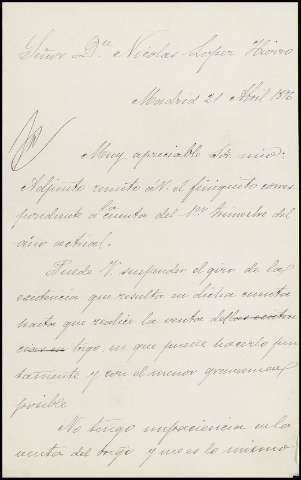 Señor Dn. Nicolas Lopez
Madrid 21 Abril 18
Muy apreciable Sr. mio:
Adjunto remito á V. el finiquito corres
pondiente a la cuenta del 1er trimestre del
año actual.
Puede V. suspender el giro de la
existencia que resulta en dicha cuenta
hasta que realice la venta del
trigo, en que puede hacerlo jun
tamente y con el menor gravamen
posible
No tengo impaciencia en la
venta del trigo y no es lo mismo